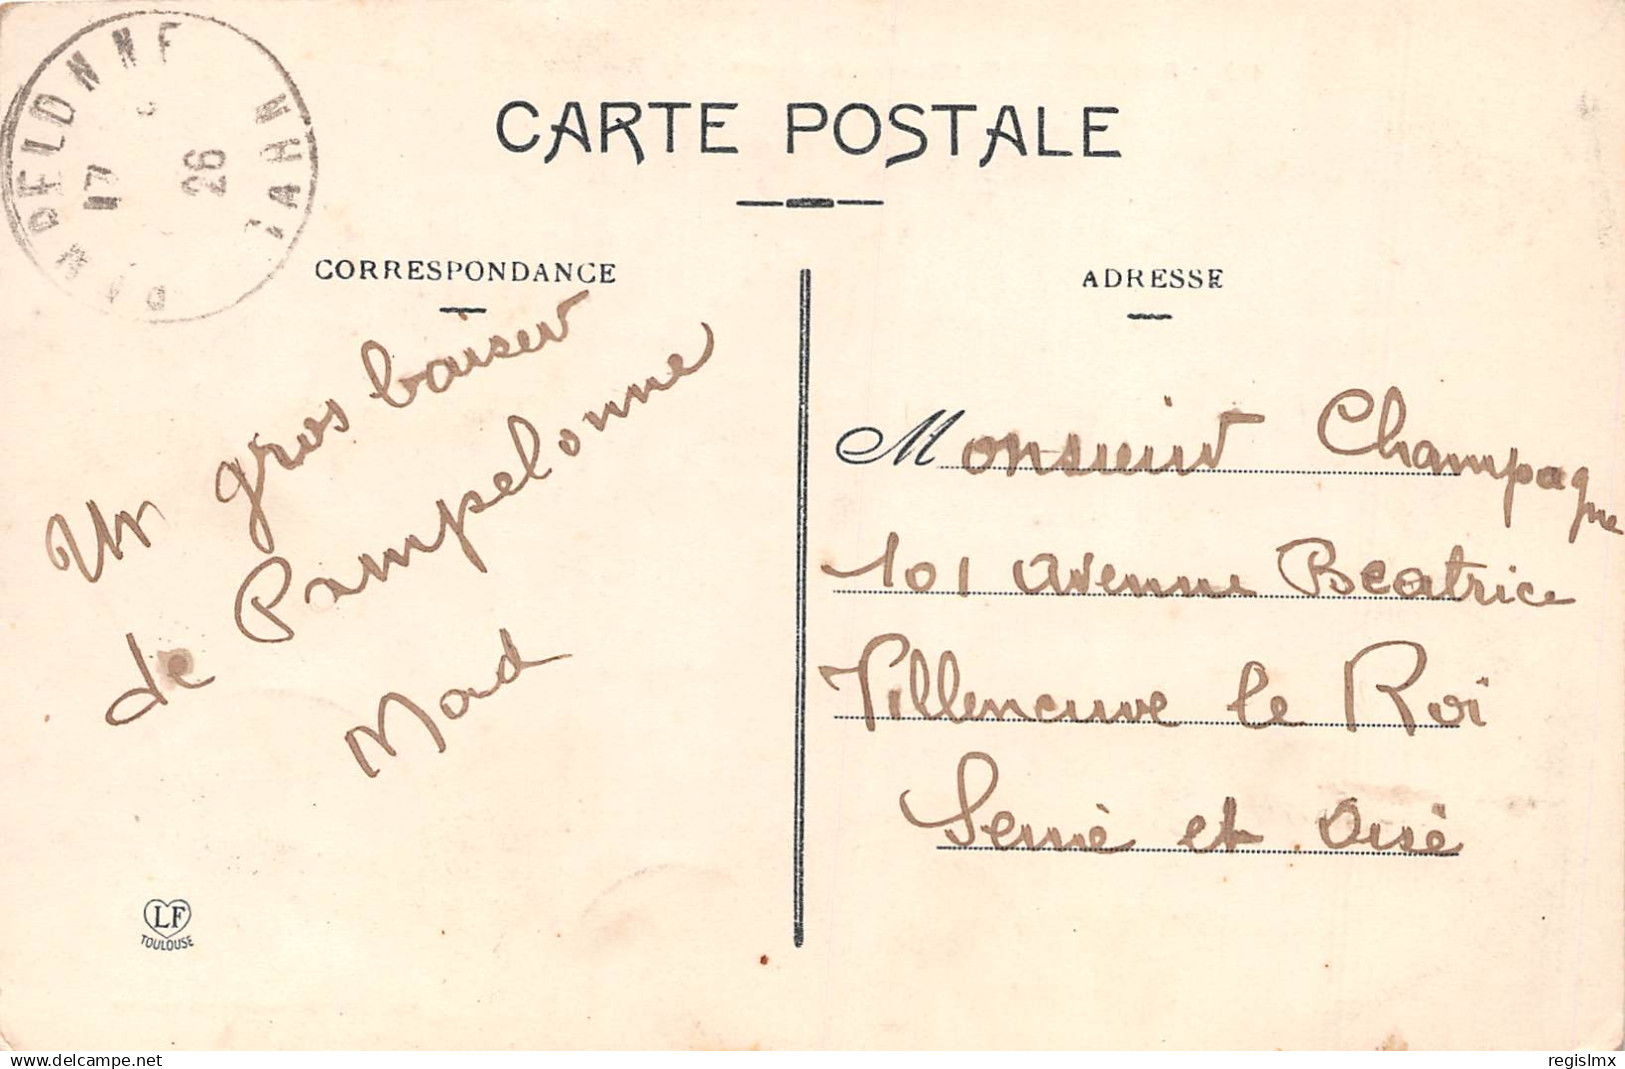 PAMPELONNE TARN
17 26
CARTE POSTALE
CORRESPONDANCE
ADRESSE
Un gros baiser
de Pampelonne
Mad
Monsieur Champagne
101 avenue Beatrice
Villeneuve le Roi
Seine et Oise
LF
TOULOUSE
www.delcampe.net
regislmx